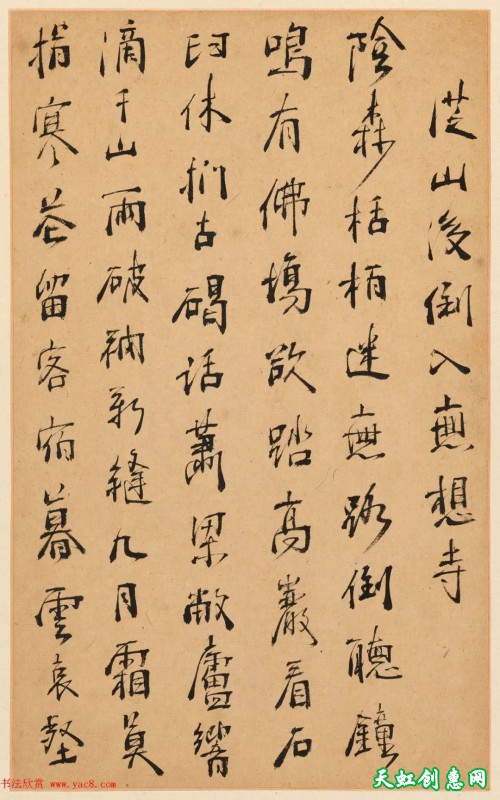 從山後倒入無想寺
陰森栝柏迷無路倒聽鐘
鳴有佛場欲踏高巖看石
臼休捫古碣話蕭梁敝廬響
滴千山雨破衲新縫九月霜莫
寒花留客宿暮雲哀壑
书法欣赏 www.yac8.com
天虹创惠网